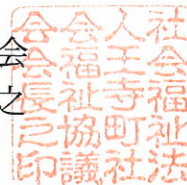 会
之
社会福祉法
人王寺町社
会福祉協議
会会長之印